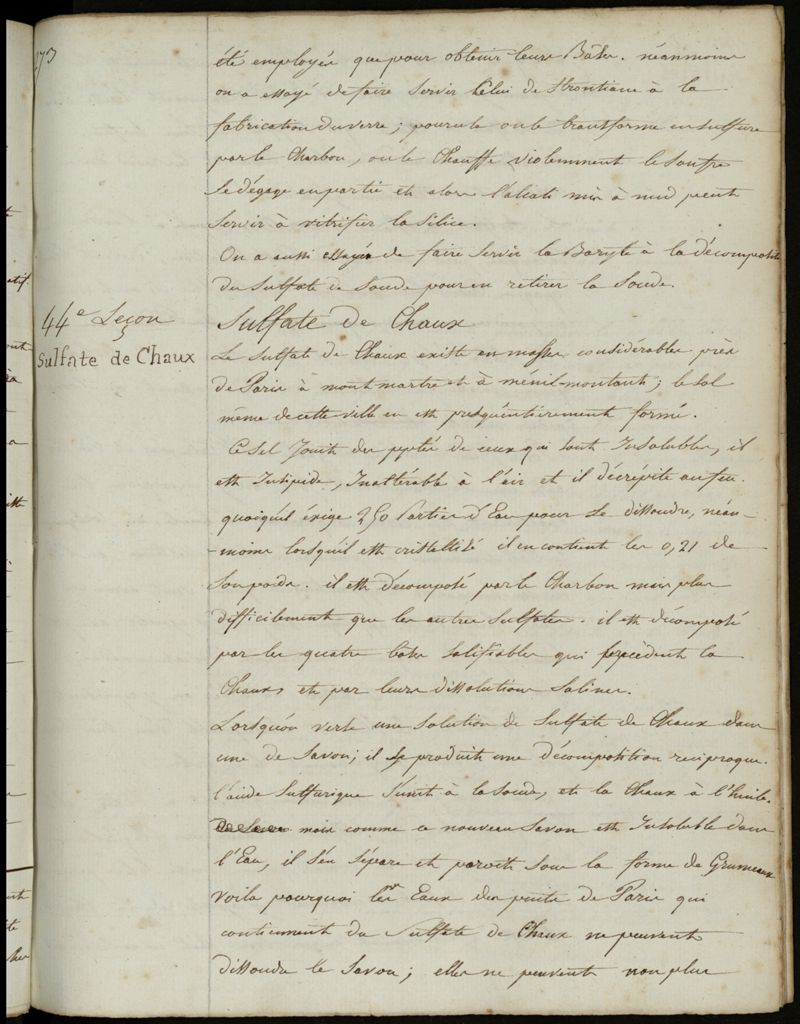 273
été employés que pour obtenir leurs Bâses. néanmoins
on a essayé de faire servir celui de Strontiane à la
fabrication du verre; pour cela on le transforme en sulfure
par le Charbon, on le Chauffe violemment le soufre
se dégage en partie et alors l'alcali mis à nud peut
servir à vitrifier la silice.
On a aussi essayé de faire servir la Baryte à la décomposition
du sulfate de Soude pour en retirer la Soude.
44e Leçon
Sulfate de Chaux
Sulfate de Chaux
Le sulfate de Chaux existe en masses considérables près
de Paris à montmartre et à ménil-montant; le sol
même de cette ville en est presqu'entièrement formé.
Ce Sel Jouit des pptés de ceux qui sont Insolubles, il
est Insipide, Inaltérable à l'air et il décrépite au feu.
quoiqu'il éxige 250 Parties d'Eau pour se dissoudre, néan-
-moins lorsqu'il est cristallisé il en contient les 0,21 de
son poids. il est décomposé par le Charbon mais plus
difficilement que les autres sulfates. il est décomposé
par les quatre bâses salifiables qui précèdent la
Chaux et par leurs dissolutions salines.
Lorsqu'on verse une solution de Sulfate de Chaux dans
une de Savon; il se produit une décomposition reciproque.
l'acide Sulfurique s'unit à la soude, et la Chaux à l'huile.
mais comme ce nouveau Savon est Insoluble dans
l'Eau, il s'en sépare et paroit sous la forme de Grumeaux
Voila pourquoi les Eaux des puits de Paris qui
contiennent du Sulfate de Chaux ne peuvent
dissoudre le Savon; elles ne peuvent non plus